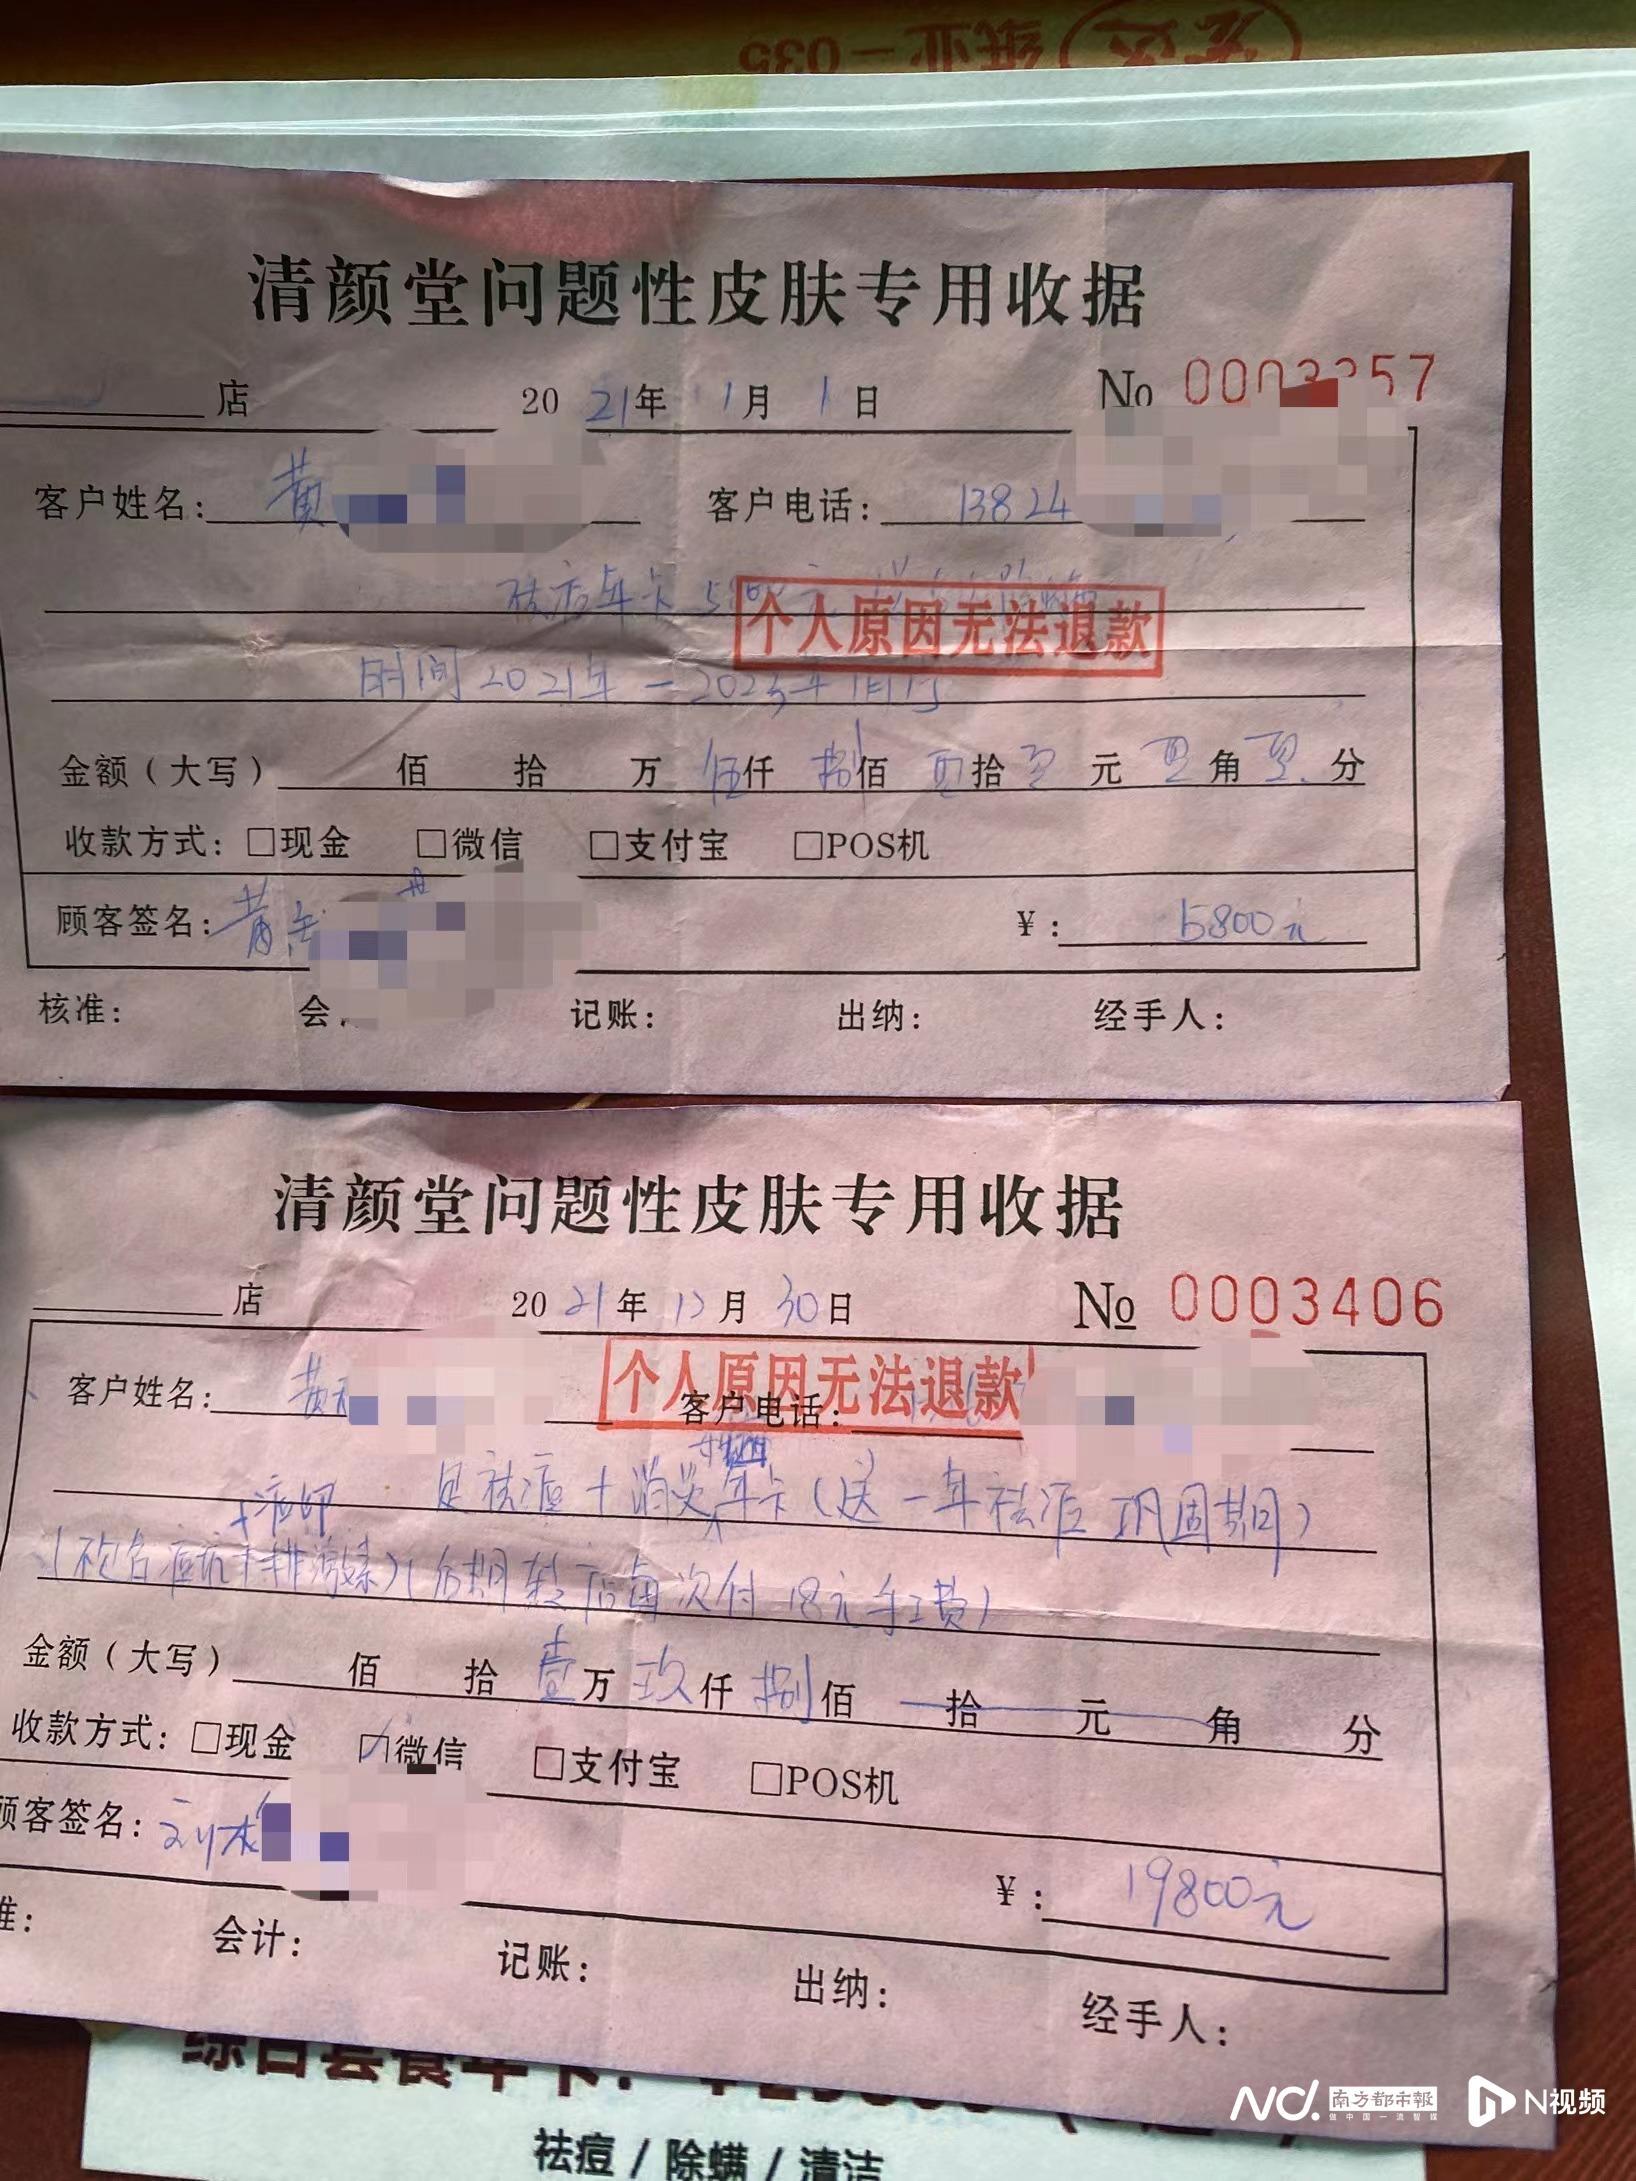 老区纸业-035
清颜堂问题性皮肤专用收据
店 2021年11月1日 No 0003357
客户姓名：黄 客户电话：13824
祛痘年卡5800元
个人原因无法退款
时间2021年-2023年1月1号
金额（大写） 佰 拾 万伍仟捌佰零拾零元零角零分
收款方式：□现金 □微信 □支付宝 □POS机
顾客签名：黄 ¥：5800元
核准： 会 记账： 出纳： 经手人：
清颜堂问题性皮肤专用收据
店 2021年12月30日 No 0003406
个人原因无法退款
客户姓名：黄 客户电话：
足祛痘+消炎年卡（送一年祛痘巩固期）
+痘印
（祛色痘坑+排激素）（后期到店每次付18元手工费）
金额（大写） 佰 拾壹万玖仟捌佰 拾 元 角 分
收款方式：□现金 ☑微信 □支付宝 □POS机
顾客签名：刘 ¥：19800元
准： 会计： 记账： 出纳： 经手人：
综合套餐年卡：
祛痘/除螨/清洁
N视频
南方都市报
做中国一流智媒